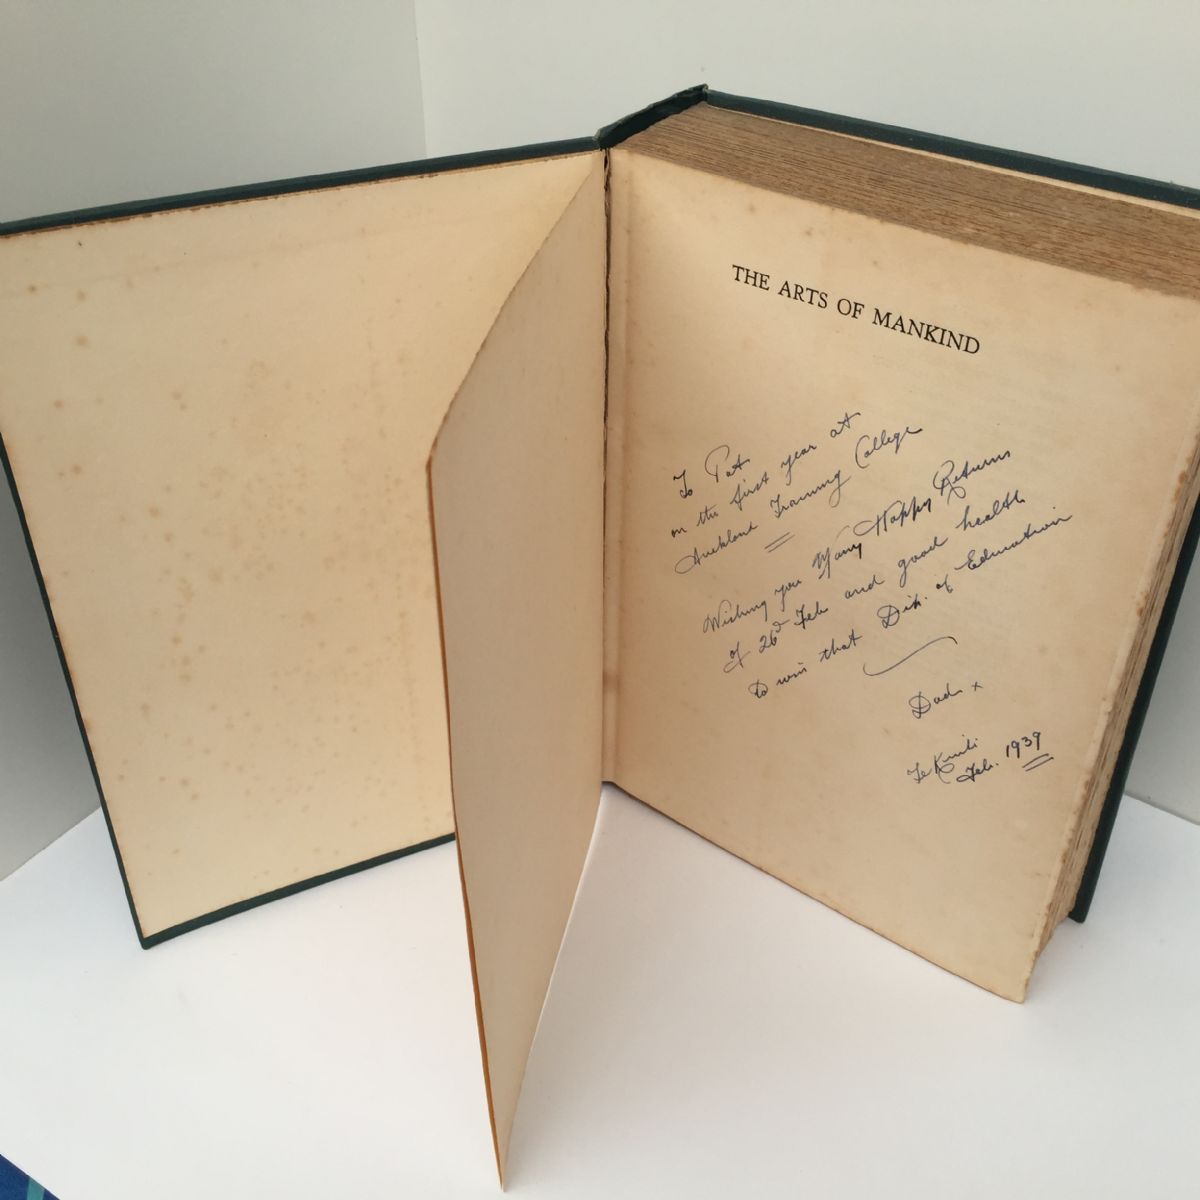 THE ARTS OF MANKIND
To Pat
on the first year at
Auckland Training College
Wishing you Many Happy Returns
of 26th Feb and good health
to win that Dip. of Education
Dad x
Te Kuiti
Feb. 1939